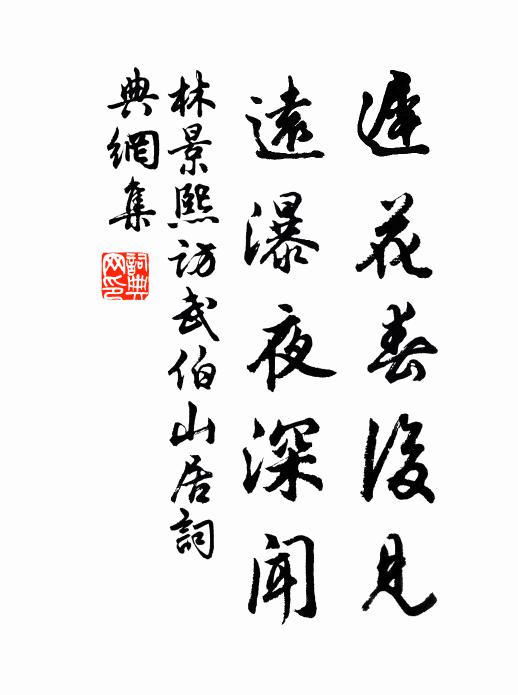 遲花春後見
遠瀑夜深聞
林景熙訪武伯山居詞
典網集
詞典
网印